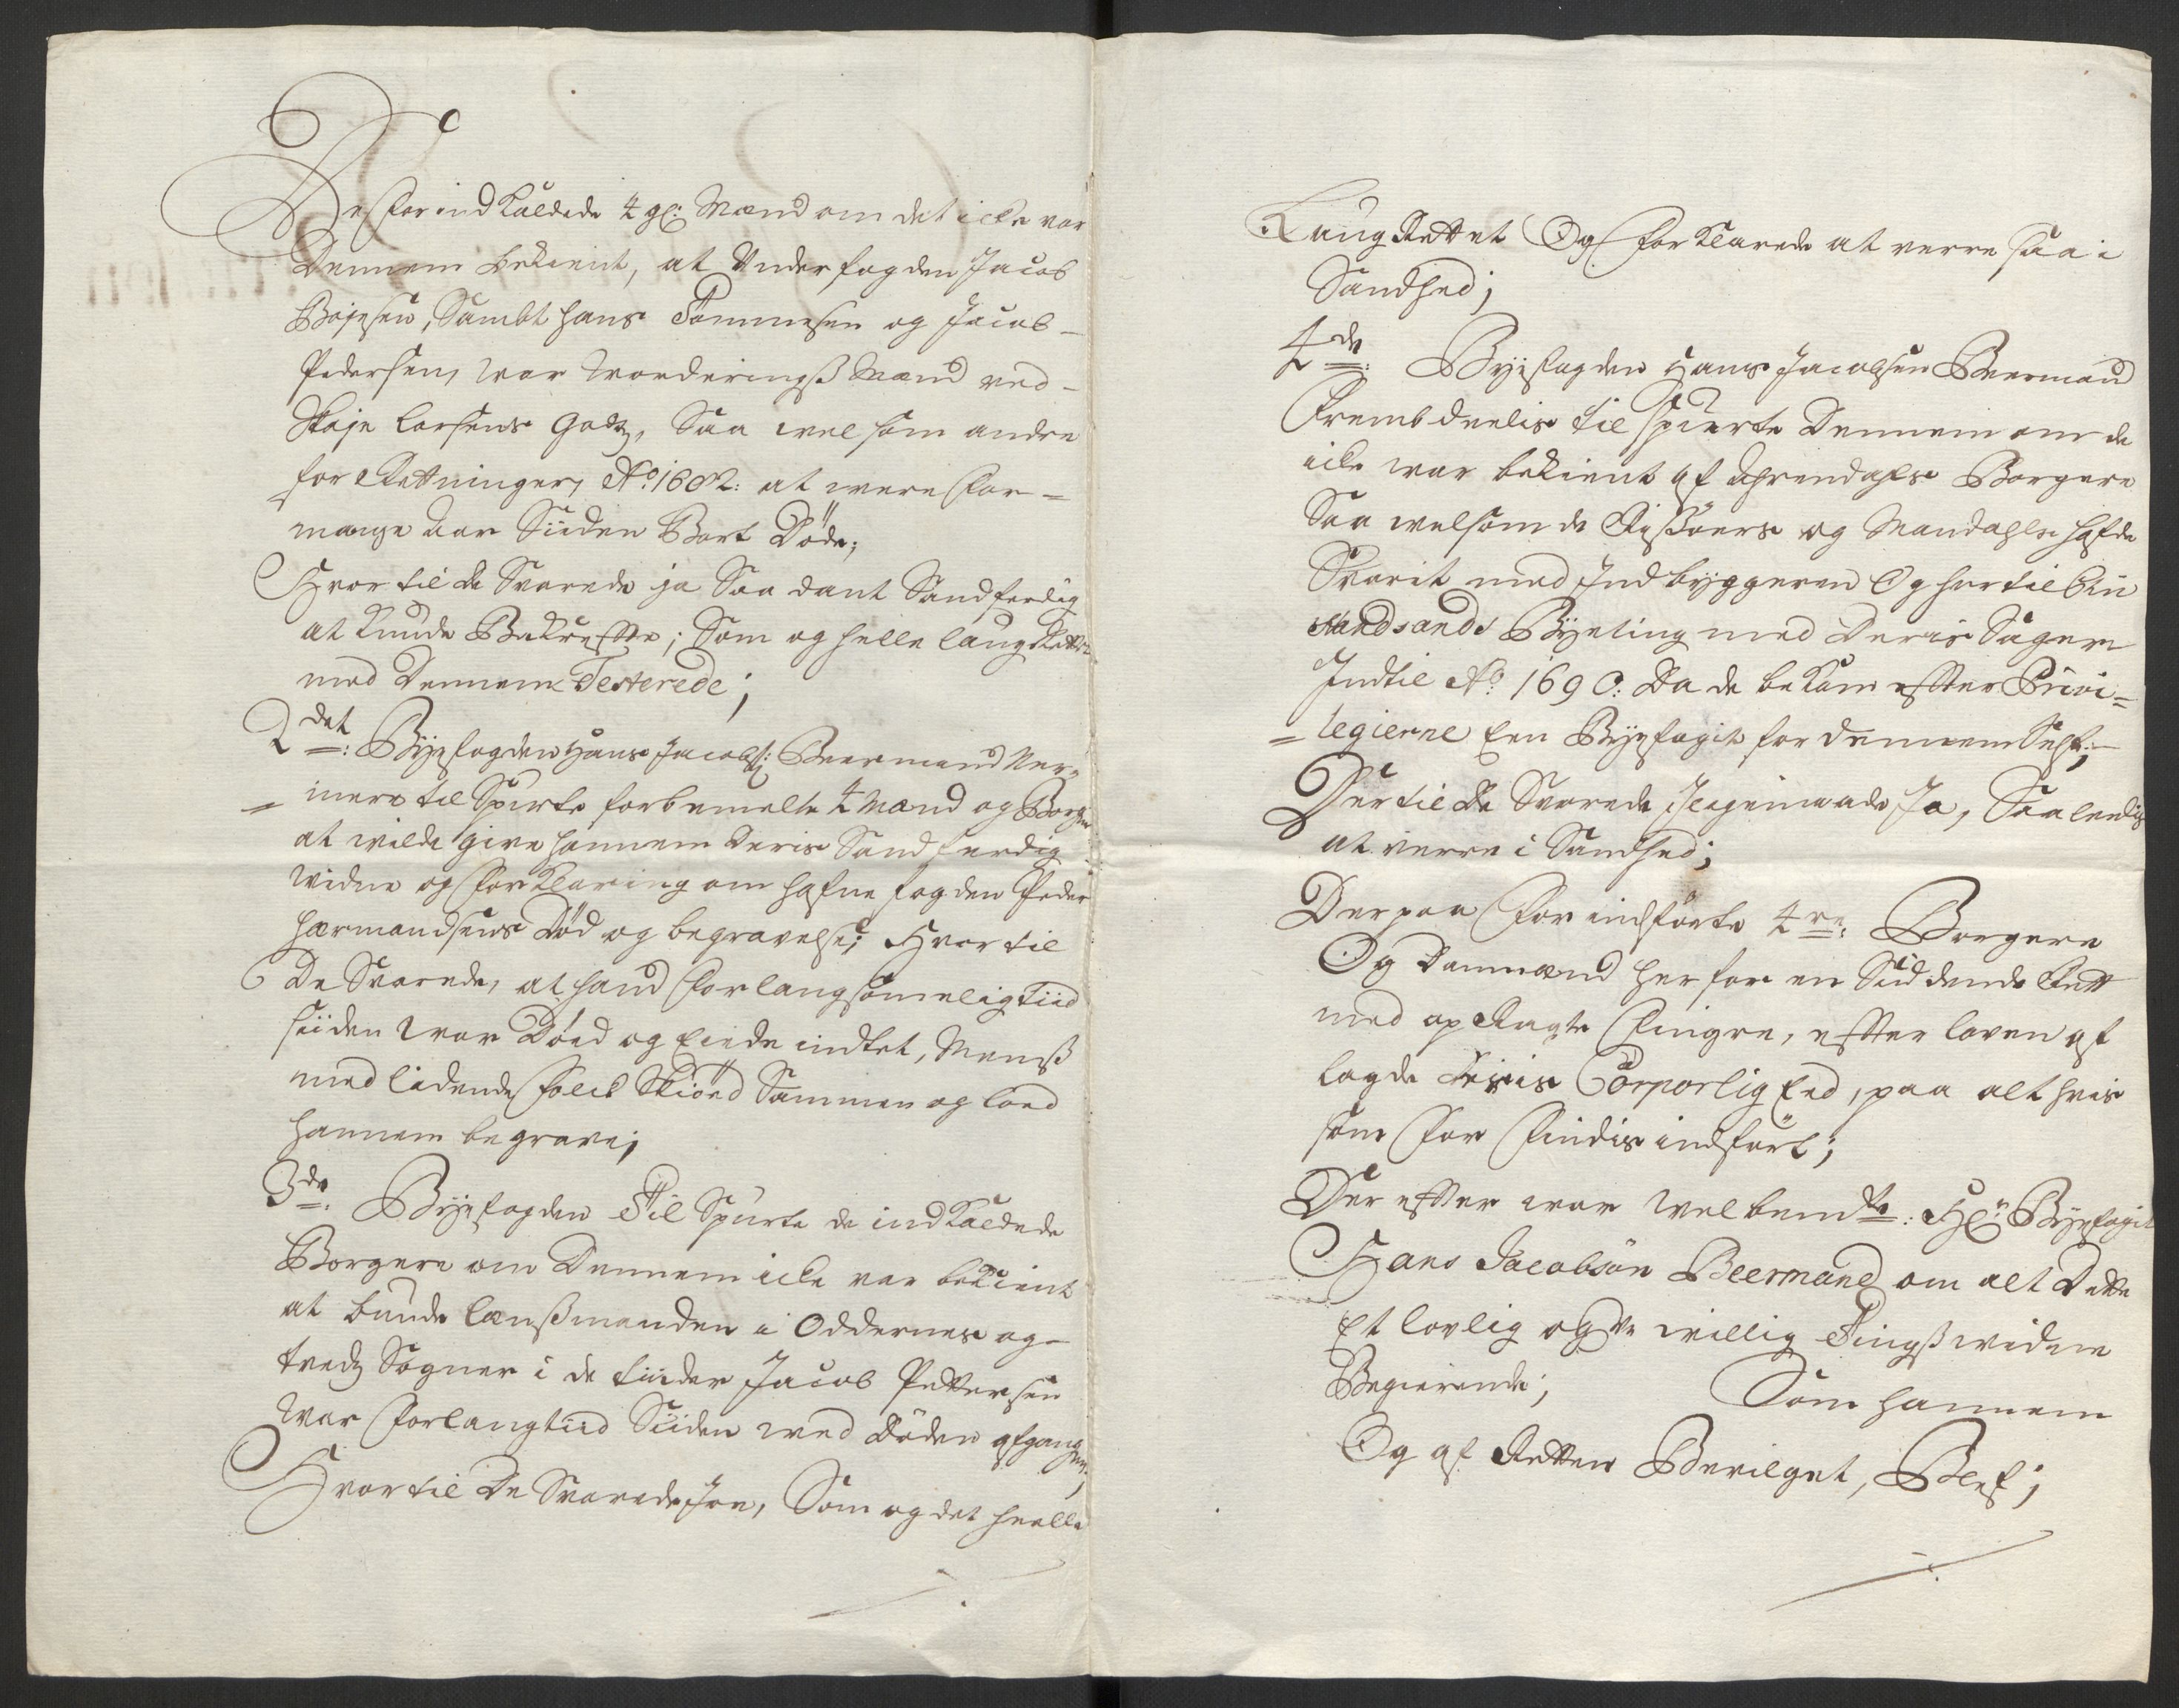 De for indkaldede 4 gl: Mænd om det icke var
Dennem bekient, at Underfogden Jacob
Bojesen, Sambt hans Tommesen og Jacob
Pedersen, war Worderingsmænd ved
Skaje Larsens Godtz, Saa vel som andre
for Retninger, Ao 1682: at were for=
mange Aar Siiden Bort Døde;
Hvor til De Svarede ja Saadant Sandferdig
at kunde Bekreffte; Som og helle laugRetten
med Dennem Testerede;
2det: Byefogden Hans Jacobs: Beermand
til Spurte forbemelte 4 Mænd og Borgere
at wilde give hannem Deris Sandferdig
widne og forklaring om hafne fogden Peder
Hermandsens Død og begravelse; Hvortil
De Svarede, at hand for langsommelig Tiid
siiden war Död og Eiede indtet, Menß
medlidende folck Skiöd Sammen og loed
hannem begrave;
3de: Byefogden Til Spurte de indkaldede
Borgere om Dennem icke var bekient
at bunde lænßmanden i Oddernes og
tvedtz Sogner i de tiider Jacob Pettersen
war for langtiid Siiden ved Döden afgangen;
Hvortil De Svarede Jae, Som og det heelle
LaugRettet Og forklarede at verre saa i
Sandhed;
4de: Byefogden Hans Jacobsen Beermand
fremdeelis til spurte Dennem om de
icke war bekient af Arendahls Borgere
Saa welsom de Riisöers og Mandahls hafde
Svarit med Indbyggeren Og her til Chri
stiandsands Byeting med Deris Sager
Indtil Ao 1690: Da de bekom effter Privi=
=legierne Een Byefogit for dennem Self;
Der til De Svarede Ja, Saaledis
at verre i Sandhed;
Derpaa for indförte 4re: Borgere
Og Danmænd her for en Siddende Rett
med opRagte fingre, effter loven af
lagde Deris Corporlig Eed, paa alt hvis
som for findis indfört;
Der effter war welbemte: Hr: Byefogit
Hans Jacobsön Beermand om alt Dette
Et lovlig willig Tingßwidne
Begierende; Som hannem
Og af Retten Bevilget, Blef;